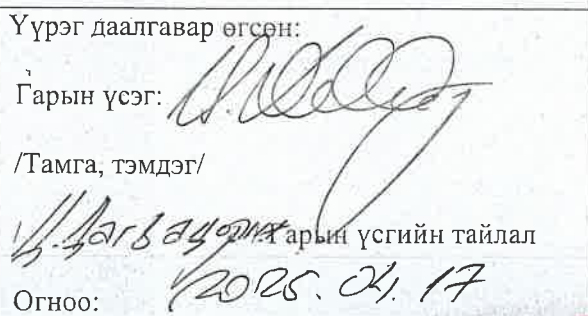 Үүрэг даалгавар өгсөн:
Гарын үсэг:
/Тамга, тэмдэг/
Ц. Дагвадорж Гарын үсгийн тайлал
Огноо: 2025. 04. 17